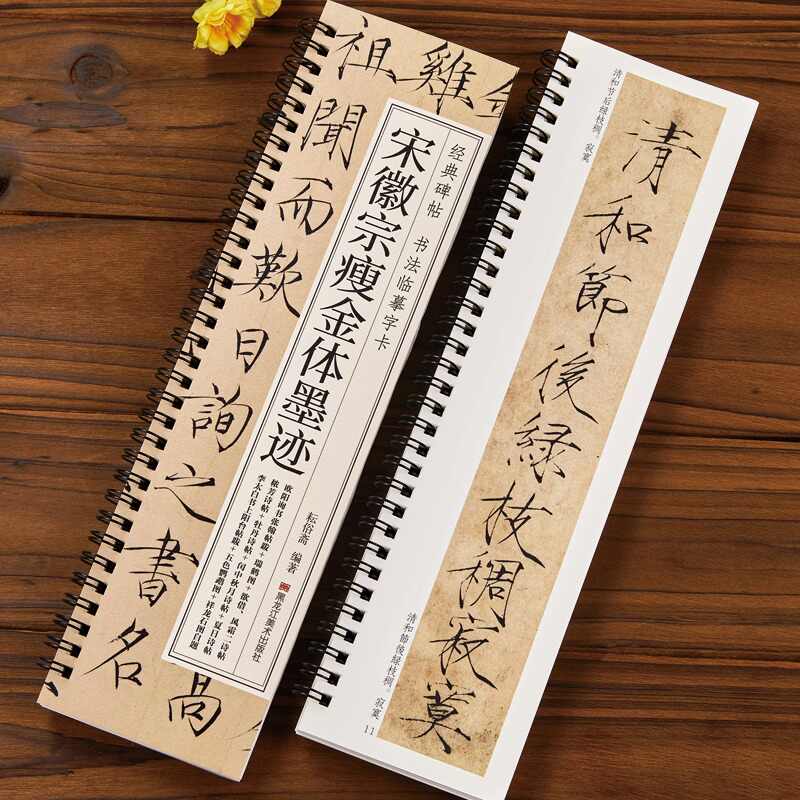 祖雞
聞而歎日詢之書名
高
经典碑帖 书法临摹字卡
宋徽宗瘦金体墨迹
欧阳询书张翰帖跋+瑞鹤图+欲借、风霜二诗帖
秾芳诗帖+牡丹诗帖+闰中秋月诗帖+夏日诗帖
李太白书上阳台帖跋+五色鹦鹉图+祥龙石图自题
耘俗斋 编著
黑龙江美术出版社
清和节后绿枝稠。寂寞
清和節後緑枝稠寂寞
清和節後緑枝稠。寂寞
11